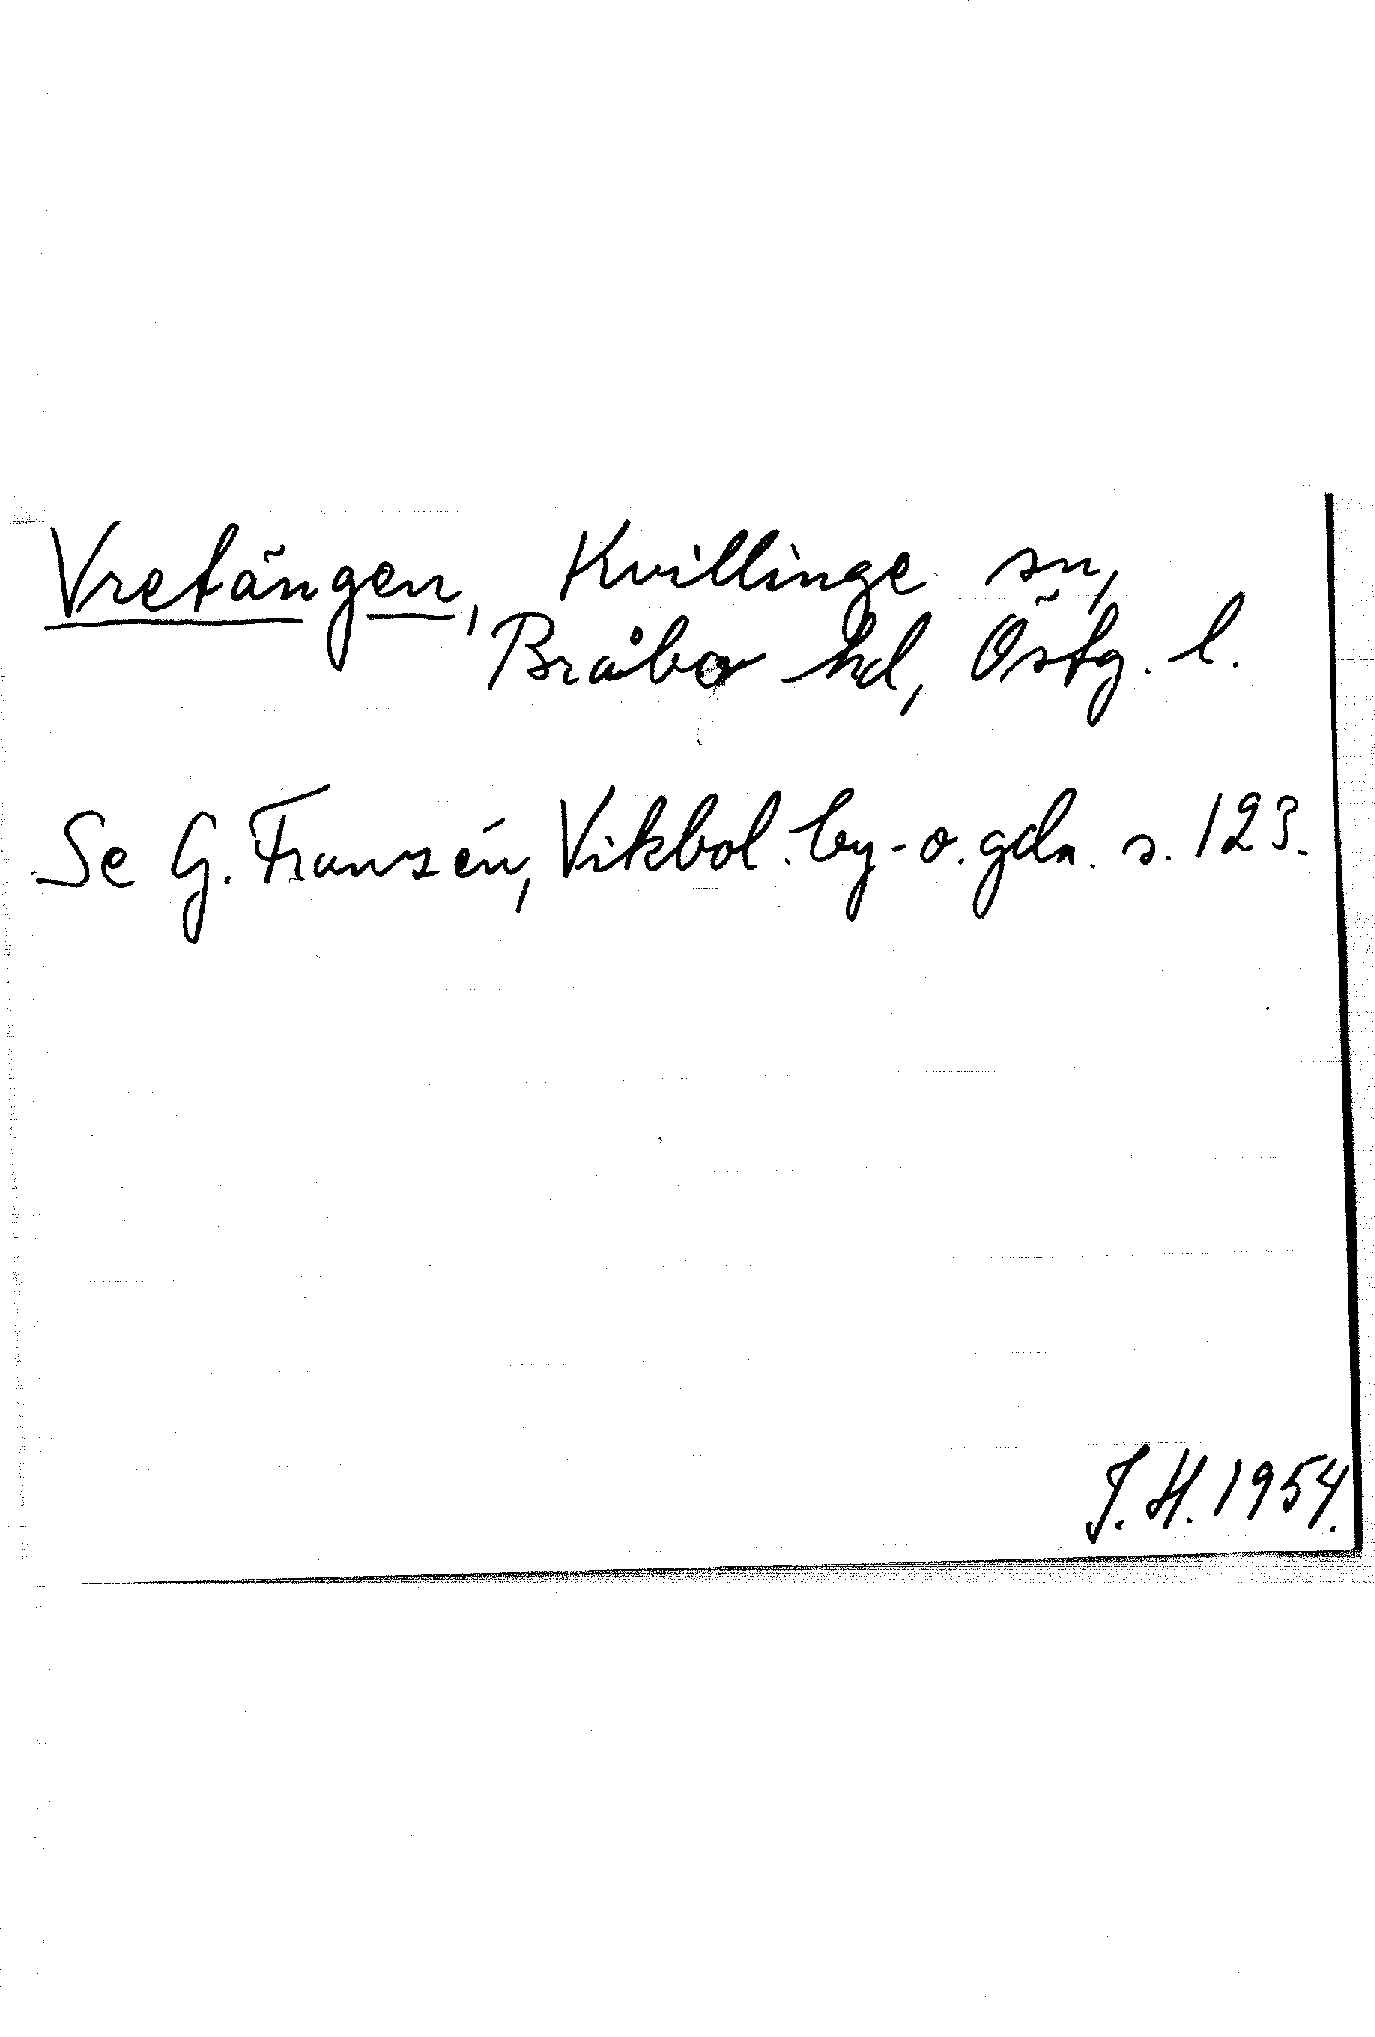 Vretängen, Kvillinge sn,
Bråbo hd, Östg. l.
Se G. Franzén, Vikbol. by- o. gdn. s. 123.
J. H. 1954.